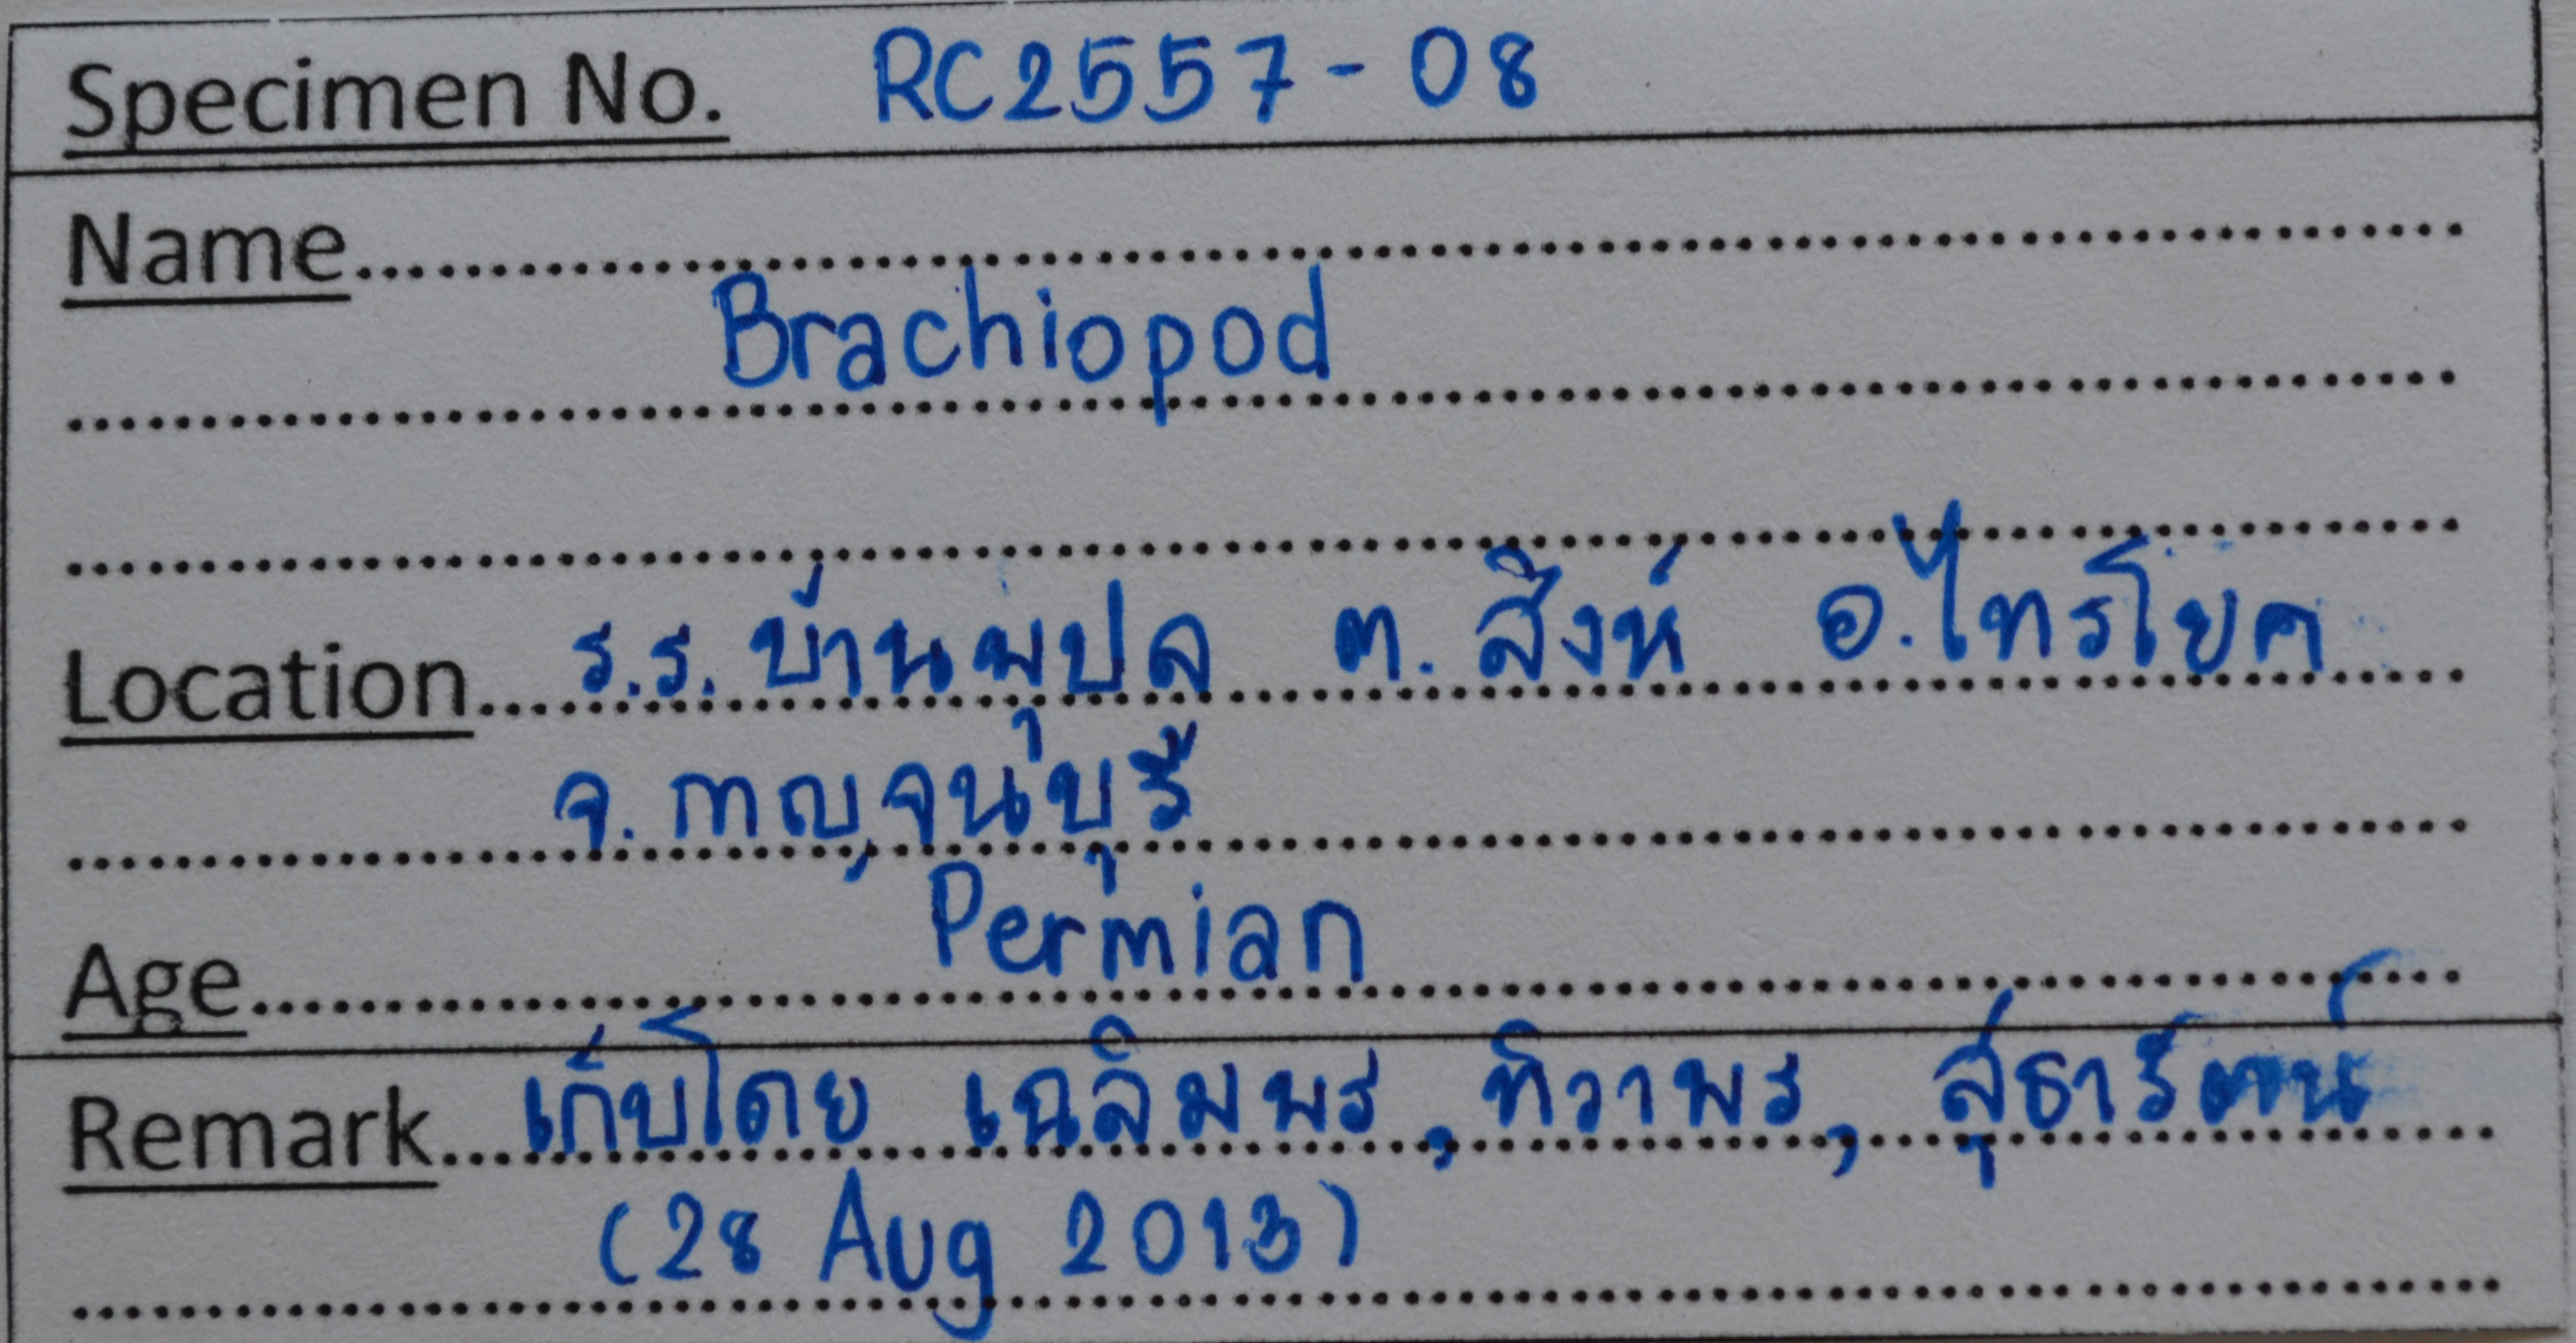 Specimen No. RC2557-08
Name
Brachiopod
Location ร.ร.บ้านพุปลู ต.สิงห์ อ.ไทรโยค
จ.กาญจนบุรี
Age Permian
Remark เก็บโดย เฉลิมพร, ทิวาพร, สุธารัตน์
(28 Aug 2013)